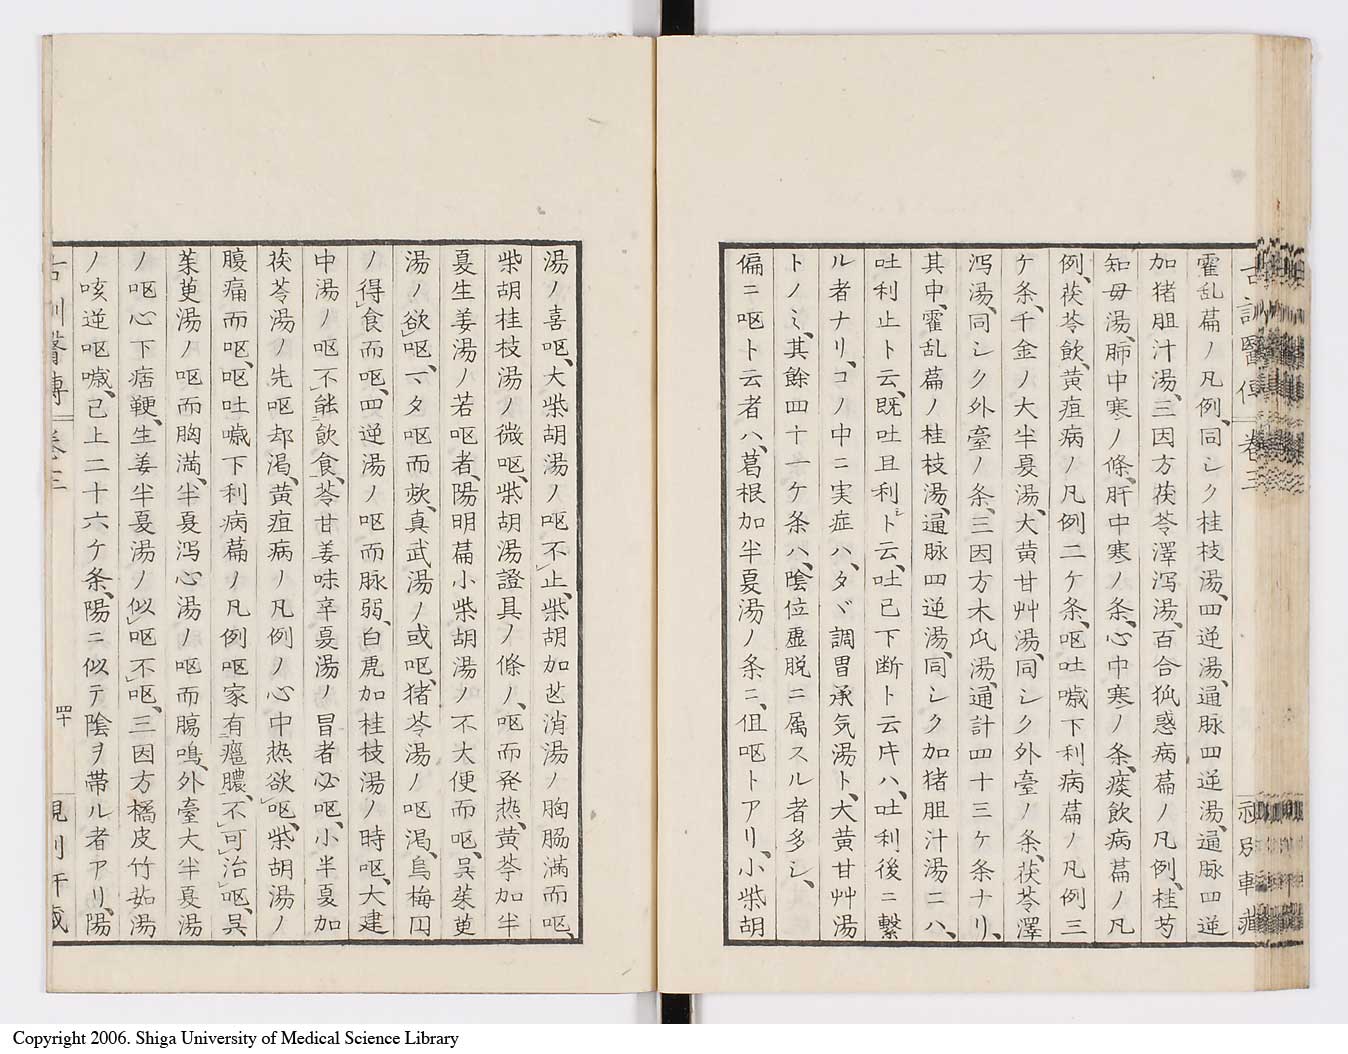 霍乱篇ノ凡例、同シク桂枝湯、四逆湯、通脉四逆湯、通脉四逆
加猪胆汁湯、三因方茯苓澤瀉湯、百合狐惑病篇ノ凡例、桂芍
知毋湯、肺中寒ノ條、肝中寒ノ条、心中寒ノ条、痰飲病篇ノ凡
例、茯苓飲、黄疸病ノ凡例二ケ条、呕吐噦下利病篇ノ凡例三
ケ条、千金ノ大半夏湯、大黄甘艸湯、同シク外臺ノ条、茯苓澤
瀉湯、同シク外臺ノ条、三因方木瓜湯、通計四十三ケ条ナリ、
其中、霍乱篇ノ桂枝湯、通脉四逆湯、同シク加猪胆汁湯ニハ、
吐利止ト云、既吐且利ト云、吐已下断ト云𪜈ハ、吐利後ニ繋
ル者ナリ、コノ中ニ実症ハ、タヾ調胃承気湯ト、大黄甘艸湯
トノミ、其餘四十一ケ条ハ、陰位虚脱ニ属スル者多シ、
偏ニ呕ト云者ハ、葛根加半夏湯ノ条ニ、但呕トアリ、小柴胡
湯ノ喜呕、大柴胡湯ノ呕不止、柴胡加芒消湯ノ胸脇満而呕、
柴胡桂枝湯ノ微呕、柴胡湯證具ノ條ノ、呕而発热、黄芩加半
夏生姜湯ノ若呕者、陽明篇小柴胡湯ノ不大便而呕、呉茱萸
湯ノ欲呕、一、タ呕而欬、真武湯ノ或呕、猪苓湯ノ呕渇、烏梅円
ノ得食而呕、四逆湯ノ呕而脉弱、白虎加桂枝湯ノ時呕、大建
中湯ノ呕不能飲食、苓甘姜味辛夏湯ノ冒者必呕、小半夏加
茯苓湯ノ先呕却渇、黄疸病ノ凡例ノ心中热欲呕、柴胡湯ノ
腹痛而呕、呕吐噦下利病篇ノ凡例呕家有癰膿、不可治呕、呉
茱萸湯ノ呕而胸満、半夏瀉心湯ノ呕而腸鳴、外臺大半夏湯
ノ呕心下痞鞕、生姜半夏湯ノ似呕不呕、三因方橘皮竹茹湯
ノ咳逆呕噦、已上二十六ケ条、陽ニ似テ陰ヲ帯ル者アリ、陽
卷三
四十